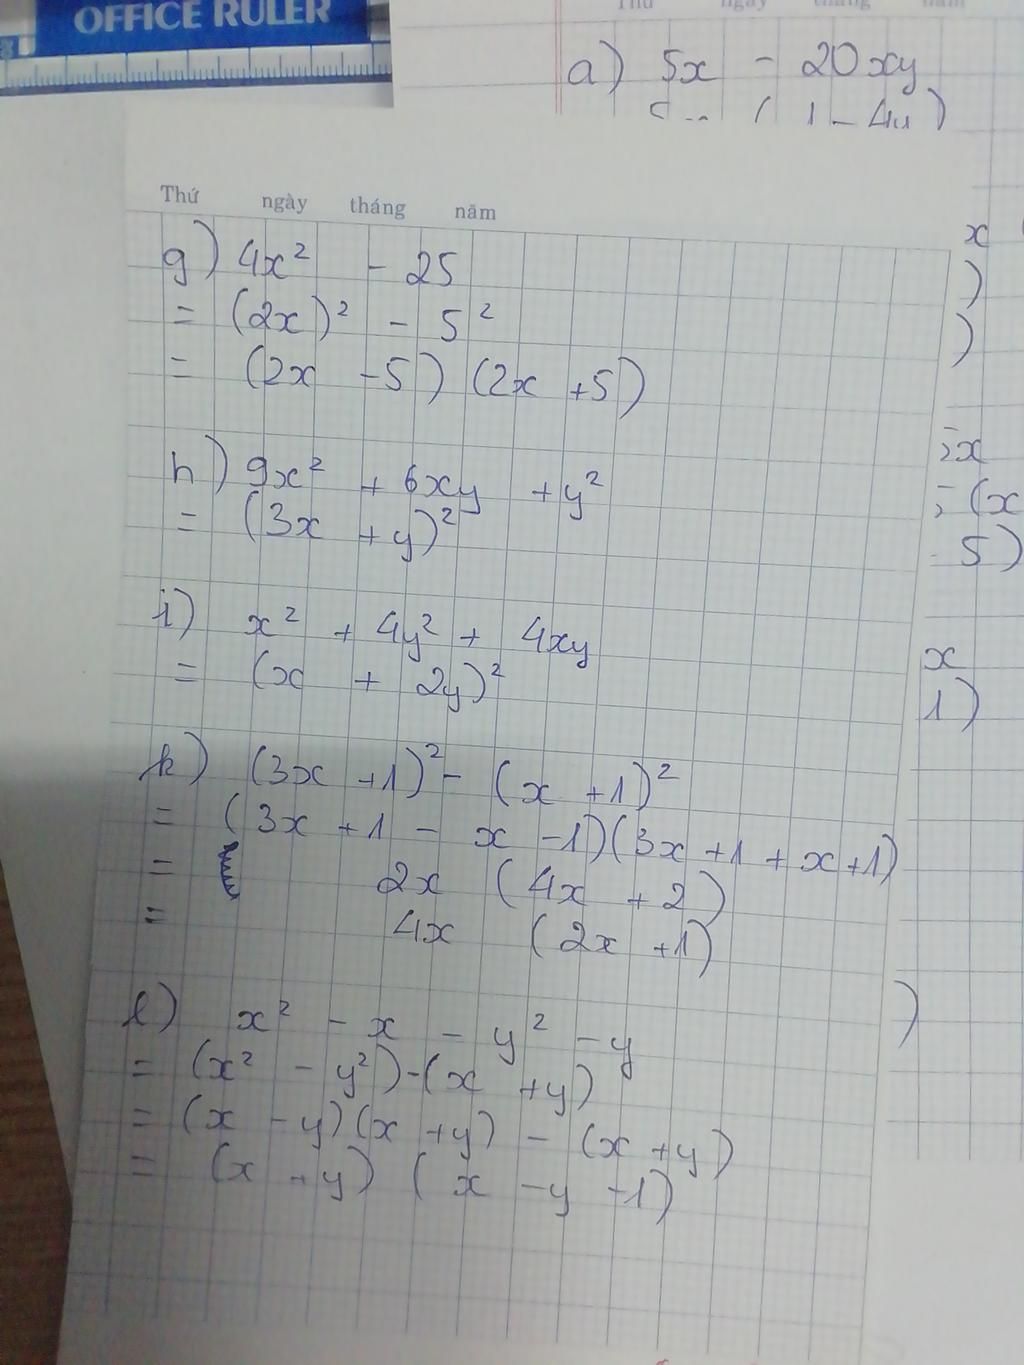 OFFICE RULER
a) 5x - 20xy
( 1 - 4y )
Thứ ngày tháng năm
g) 4x² - 25
= (2x)² - 5²
= (2x - 5) (2x + 5)
h) 9x² + 6xy + y²
= (3x + y)²
i) x² + 4y² + 4xy
= (x + 2y)²
k) (3x + 1)² - (x + 1)²
= (3x + 1 - x - 1)(3x + 1 + x + 1)
= 2x (4x + 2)
= 4x (2x + 1)
l) x² - x - y² - y
= (x² - y²) - (x + y)
= (x - y)(x + y) - (x + y)
= (x + y) (x - y - 1)
x
)
)
x
(x
5)
x
1)
)